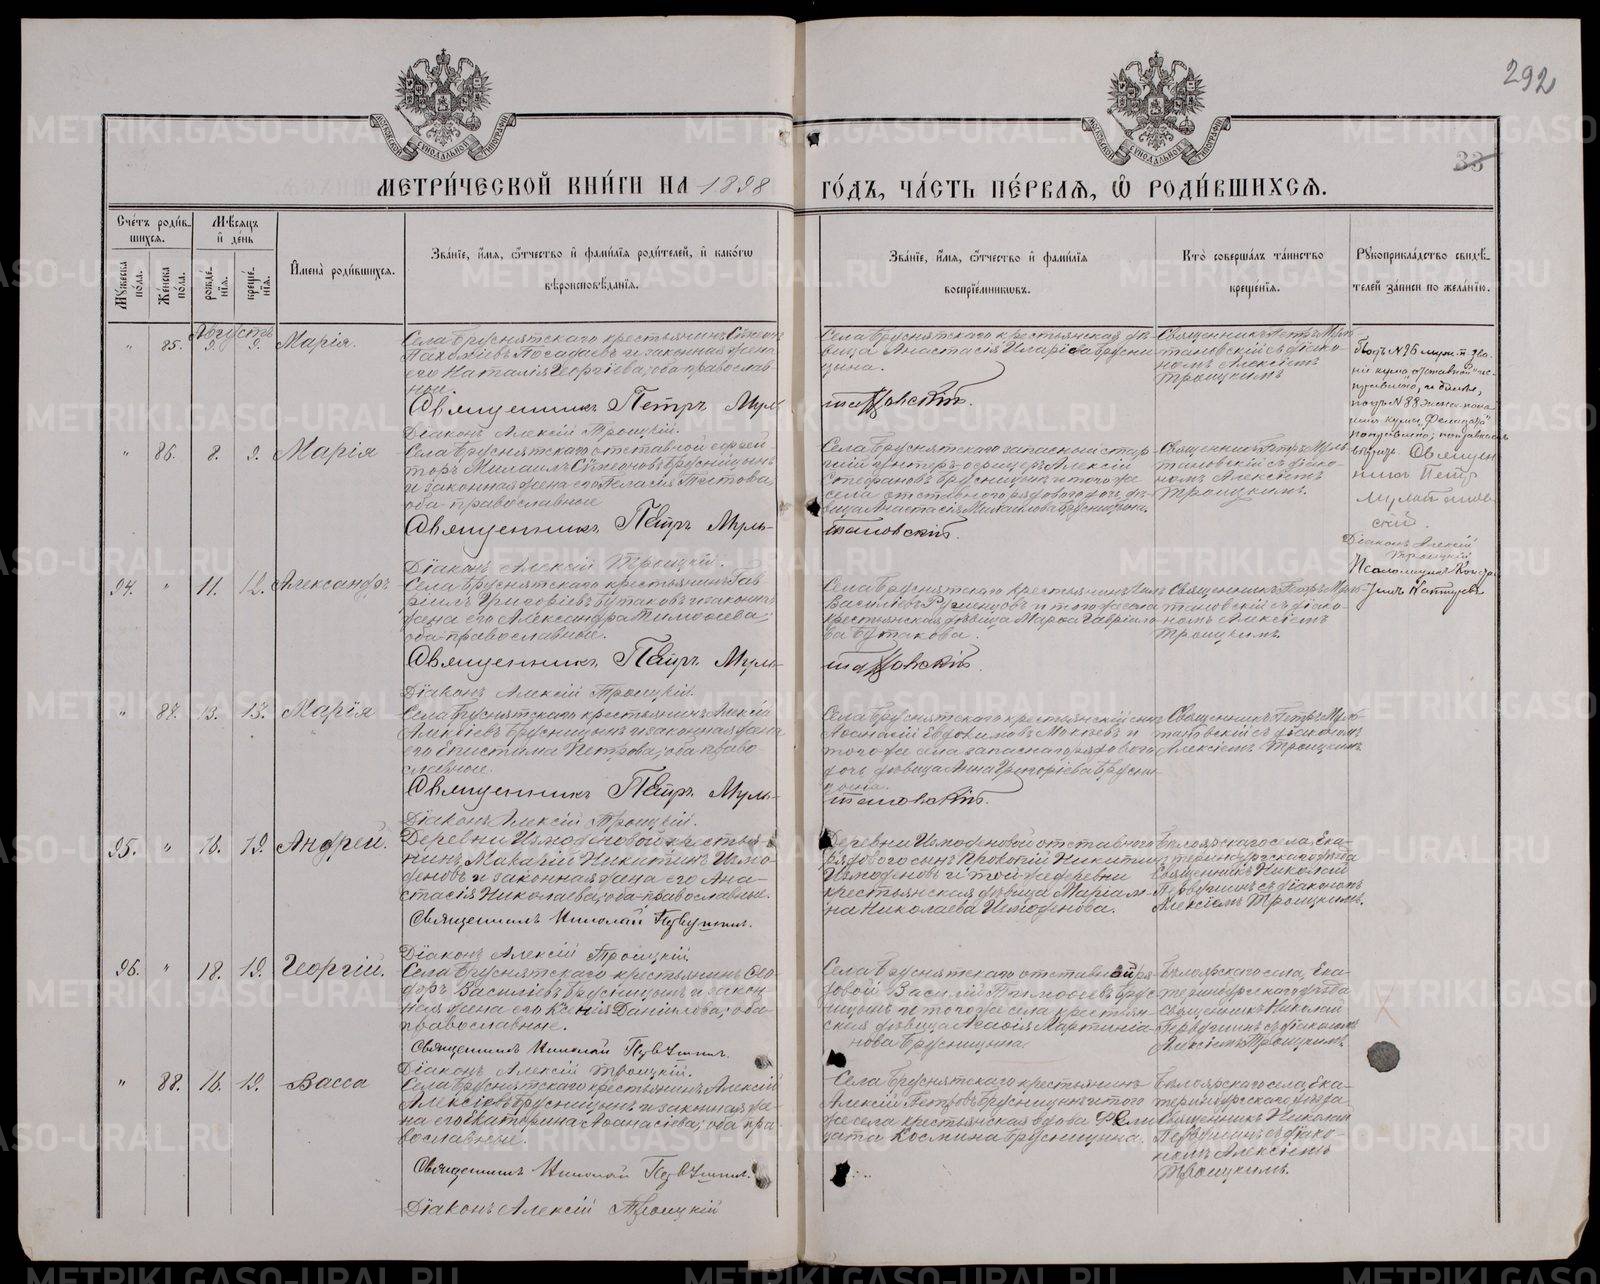 292
33
МОСКОВСКОЙ СУНОДАЛЬНОЙ ТИПОГРАФІИ
МОСКОВСКОЙ СУНОДАЛЬНОЙ ТИПОГРАФІИ
МЕТРИ́ЧЕСКОЙ КНИ́ГИ НА 1898 ГО́ДЪ, ЧА́СТЬ ПЕ́РВАѦ, Ѡ РОДИ́ВШИХСѦ.
Сче́тъ роди́в-
шихсѧ.
Мꙋжеска по́ла.
Же́нска по́ла.
Мѣ́сѧцъ
и де́нь
рожде́нїѧ.
креще́нїѧ.
И҆мена̀ роди́вшихсѧ.
Зва́нїе, и҆́мѧ, ѻ҆́тчество и҆ фами́лїѧ роди́телей, и҆ како́гѡ
вѣроисповѣ́данїѧ.
Зва́нїе, и҆́мѧ, ѻ҆́тчество и҆ фами́лїѧ
воспрїе́мникѡвъ.
Кто̀ соверша́лъ та́инство
креще́нїѧ.
Рꙋкоприкла́дство свидѣ́-
телей за́писи по жела́нїю.
Августъ
" 85. 9. 9. Марія.
Села Бруснятскаго крестьянинъ Симеонъ
Пахоміевъ Посадавъ и законная жена
его Наталія Георгіева, оба православ-
ные.
Священникъ Петръ Муль
Діаконъ Алексій Троицкій.
Села Бруснятскаго крестьянская дѣ-
вица Анастасія Иларіова Брусни-
цина.
тановскій.
Священникъ Петръ Мул-
тановскій съ діако-
номъ Алексіемъ
Троицкимъ
" 86. 8. 9. Марія
Села Бруснятскаго отставной
Михаилъ Симеоновъ Брусницынъ
и законная жена его Пеласія Титова,
оба православные
Священникъ Петръ Муль-
Діаконъ Алексій Троицкій.
Села Бруснятскаго запасный стар-
шій унтеръ-офицеръ Алексій
Стефановъ Брусницынъ и того же
села отставного рядового дочь дѣ-
вица Анастасія Михайлова Брусницына.
тановскій.
Священникъ Петръ Муль-
тановскій съ діако-
номъ Алексіемъ
Троицкимъ.
94. " 11. 12. Александръ
Села Бруснятскаго крестьянинъ Гав-
ріилъ Григоріевъ Бутаковъ и законная
жена его Александра Тимофеева,
оба православные.
Священникъ Петръ Муль-
Діаконъ Алексій Троицкій.
Села Бруснятскаго крестьянинъ
Василіевъ и того же села
крестьянская дѣвица Марфа Гавріило-
ва Бутакова.
тановскій.
Священникъ Петръ Муль-
тановскій съ діако-
номъ Алексіемъ
Троицкимъ.
" 87. 13. 13. Марія
Села Бруснятскаго крестьянинъ Алексій
Алексіевъ Брусницынъ и законная жена
его Епистимія Петрова, оба право-
славные.
Священникъ Петръ Муль-
Діаконъ Алексій Троицкій.
Села Бруснятскаго крестьянскій сынъ
Афанасій Евфимовъ Мокѣевъ и
того же села запаснаго рядового
дочь дѣвица Анна Григоріева Брусни-
цына.
тановскій.
Священникъ Петръ Муль-
тановскій съ діакономъ
Алексіемъ Троицкимъ
95. " 16. 19. Андрей.
Деревни Измоденовой крестья-
нинъ Макарій Никитинъ Измо-
деновъ и законная жена его Ана-
стасія Николаева, оба православные.
Священникъ Николай Первушинъ.
Діаконъ Алексій Троицкій.
Деревни Измоденовой отставного
рядового сынъ Прокопій Никитинъ
Измоденовъ и той же деревни
крестьянская дѣвица Маріам-
на Николаева Измоденова.
Бѣлоярскаго села, Ека-
теринбургскаго уѣзда
Священникъ Николай
Первушинъ съ діакономъ
Алексіемъ Троицкимъ.
96. " 18. 19. Георгій.
Села Бруснятскаго крестьянинъ Ѳео-
доръ Василіевъ Брусницынъ и закон-
ная жена его Ксенія Данилова, оба
православные.
Священникъ Николай Первушинъ.
Діаконъ Алексій Троицкій.
Села Бруснятскаго отставной ря-
довой Василій Тимофеевъ Брус-
ницынъ и того же села крестьян-
ская дѣвица Агафія Мартиніа-
нова Брусницына
Бѣлоярскаго села, Ека-
теринбургскаго уѣзда
Священникъ Николай
Первушинъ съ діакономъ
Алексіемъ Троицкимъ.
" 88. 16. 19. Васса
Села Бруснятскаго крестьянинъ Алексій
Алексіевъ Брусницынъ и законная же-
на его Екатерина Афанасіева, оба пра-
вославные.
Священникъ Николай Первушинъ.
Діаконъ Алексій Троицкій
Села Бруснятскаго крестьянинъ
Алексій Петровъ Брусницынъ и того
же села крестьянская вдова Фели-
цата Космина Брусницына.
Бѣлоярскаго села, Ека-
теринбургскаго уѣзда
Священникъ Николай
Первушинъ съ діако-
номъ Алексіемъ
Троицкимъ.
Подъ №96 муж. п. зва-
ніе кума „отставной" ис-
правлено,
подъ №88 женск. пола
имя кумы „Фелицата"
поправлено;
Священ
никъ Петръ
Мультанов
скій.
Діаконъ Алексій
Троицкій
Псаломщикъ
METRIKI.GASO-URAL.RU